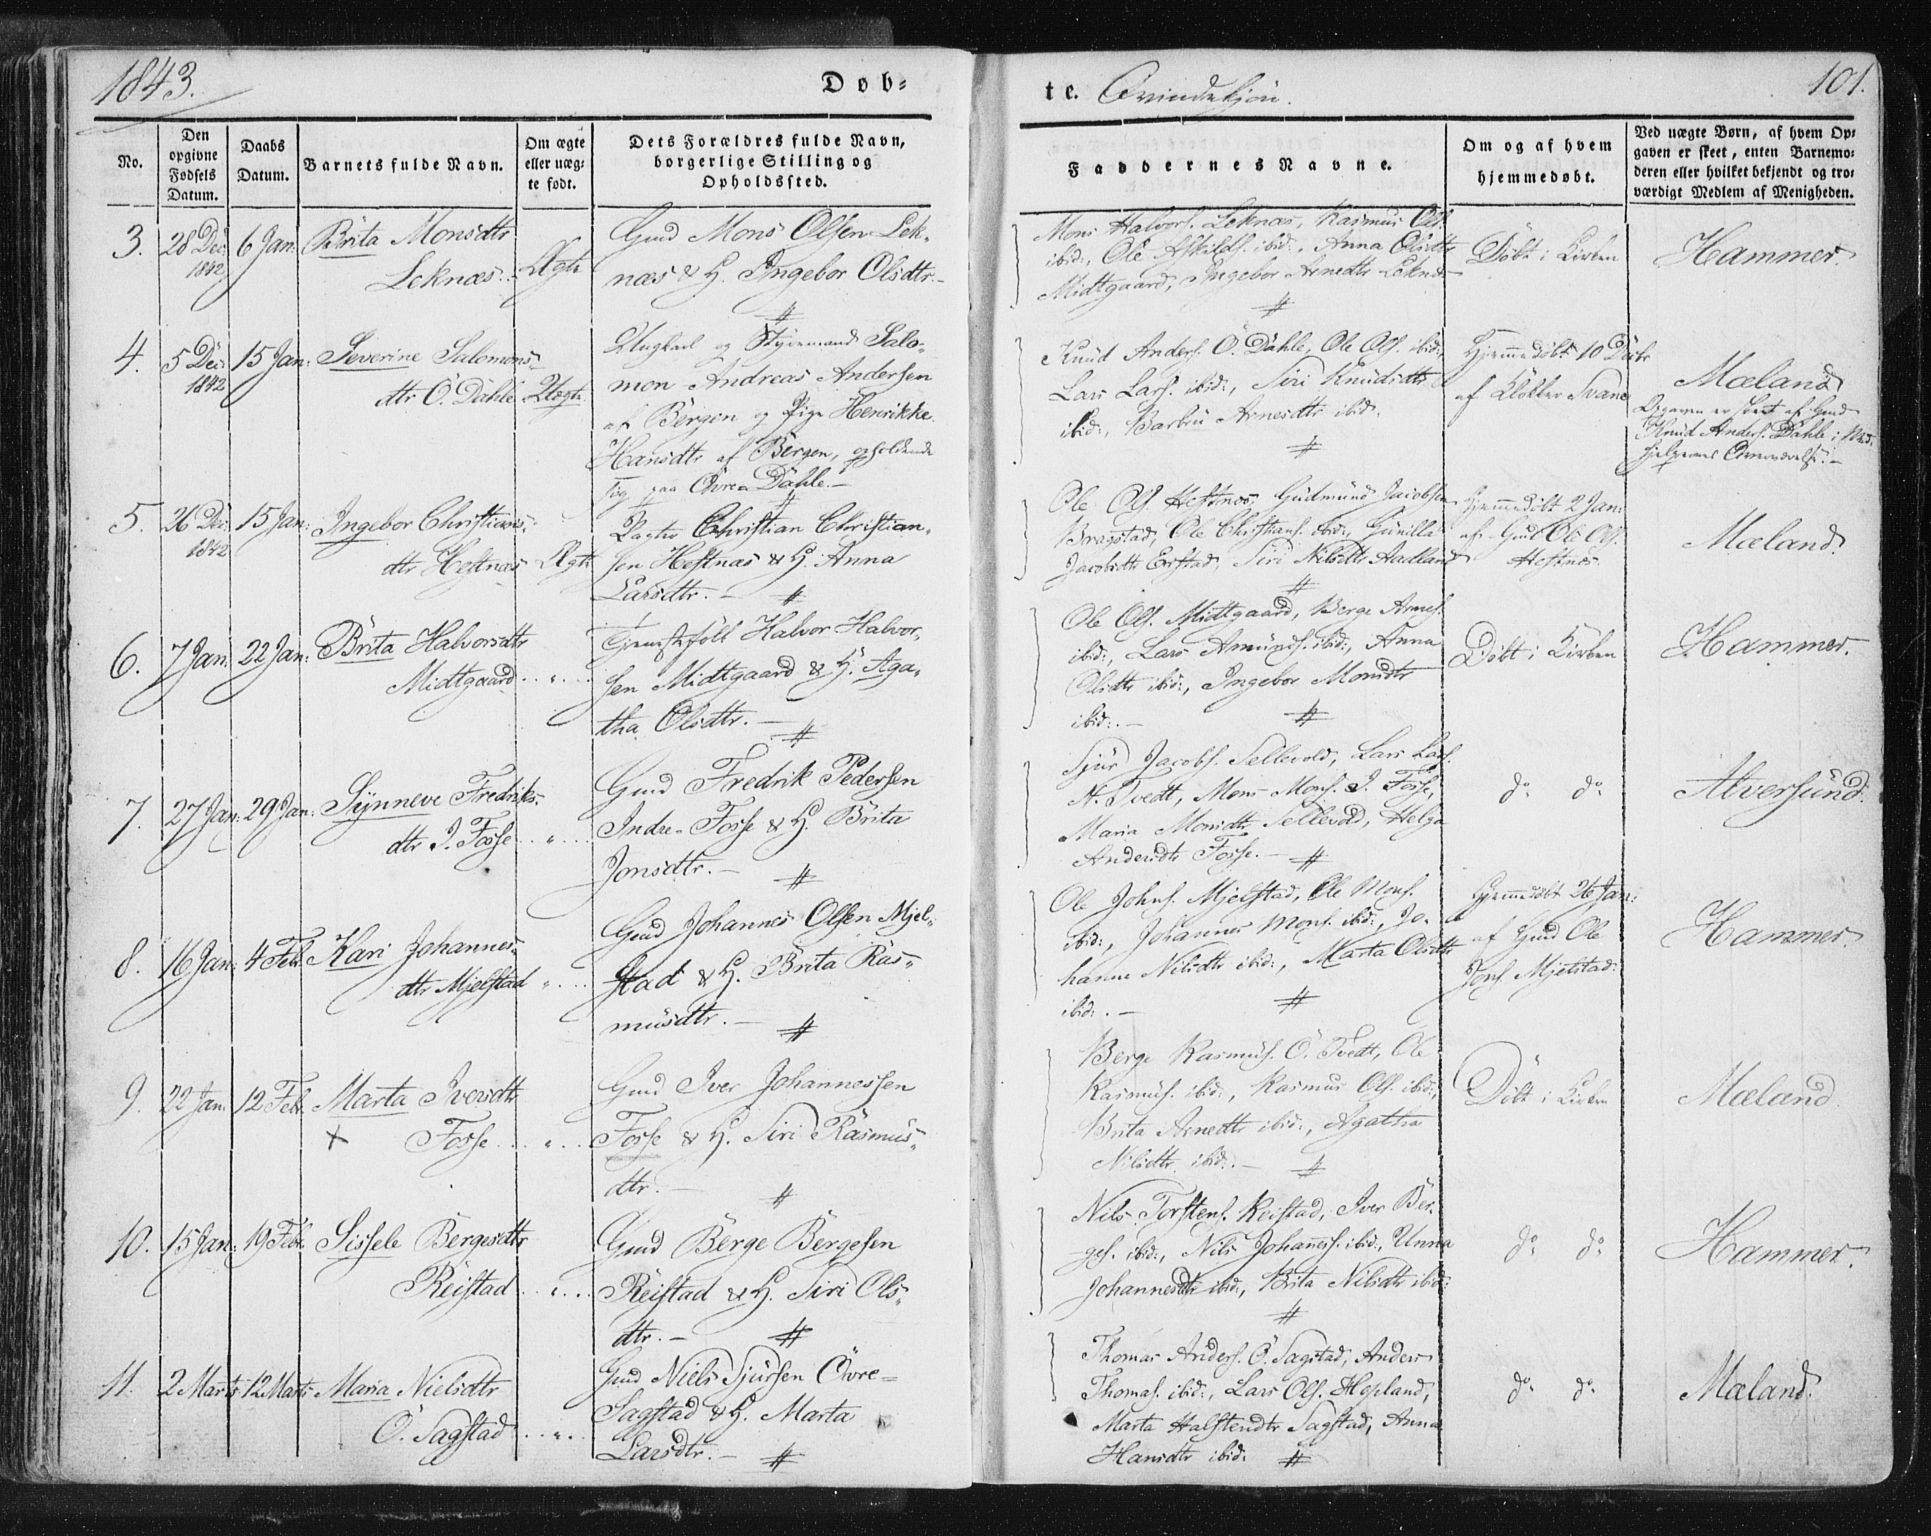 1843.
Døb-
te. Qvindekjön.
101.
No.
Den opgivne Fødsels Datum.
Daabs Datum.
Barnets fulde Navn.
Om ægte eller uæg- te født.
Dets Forældres fulde Navn, borgerlige Stilling og Opholdssted.
Faddernes Navne.
Om og af hvem hjemmedøbt.
Ved uægte Børn, af hvem Op- gaven er skeet, enten Barnemo- deren eller hvilket bekjendt og tro- værdigt Medlem af Menigheden.
3. 28 Dec: 1842 6 Jan:
Brita Monsdtr
Leknæs. Ægte
Gmd Mons Olsen Lek-
næs & H. Ingebor Olsdtr. -
Mons Halvors. Leknæs, Rasmus Ols.
ibid:, Ole Askilds. ibid:, Anna Olsdtr
Midtgaard, Ingebor Arnedtr Leknæs
Döbt i Kirken
Hammer.
4. 5 Dec: 1842 15 Jan:
Severine Salomons-
dtr Ö. Dahle Uægte
Ungkarl og Styrmand Salo-
mon Andreas Andersen
af Bergen og Pige Henrikke
Hansdtr af Bergen, opholdende
sig paa Övre Dahle. -
Knud Anders. Ö. Dahle, Ole Ols. ibid:,
Lars Lars. ibid:, Siri Knudsdtr
ibid:, Barbru Arnesdtr ibid:
Hjemmedöbt 10 Decbr
af Klokker Svane
Mæland
Opgaven er skeet af Gmd
Knud Anders. Dahle i Med-
hjelperens Overværelse. -
5. 26 Dec: 1842 15 Jan:
Ingebor Christians-
dtr Hestnæs Ægte
Christian Christian-
sen Hestnæs & H. Anna
Larsdtr. -
Ole Ols. Hestnæs, Gudmund Jacobsen
Bragstad, Ole Christians. ibid:, Gunilla
Jacobsdtr Erstad, Siri Nilsdtr Aadland
Hjemmedöbt 2 Jan:
af Gmd Ole Ols.
Hestnes.
Mæland.
6. 7 Jan: 22 Jan:
Brita Halvorsdtr
Midtgaard . . „ . .
Tjenestefölk Halvor Halvor-
sen Midtgaard & H. Aga-
tha Olsdtr. -
Ole Ols. Midtgaard, Berge Arnes.
ibid:, Lars Amunds. ibid:, Anna
Olsdtr ibid:, Ingebor Monsdtr
ibid:. -
Döbt i Kirken
Hammer.
7. 27 Jan: 29 Jan:
Synneve Fredriks-
dtr I. Fosse . . „ . .
Gmd Fredrik Pedersen
Indre Fosse & H. Brita
Jonsdtr. -
Sjur Jacobs. Sellevold, Lars Lars.
N. Tvedt, Mons Mons. I. Fosse,
Maria Monsdtr Sellevold, Helga
Andersdtr Fosse. -
do do
Alversund.
8. 16 Jan: 4 Feb:
Kari Johannes-
dtr Mjelstad „ . .
Gmd Johannes Olsen Mjel-
stad & H. Brita Ras-
musdtr. -
Ole Johns. Mjelstad, Ole Mons.
ibid:, Johannes Mons. ibid:, Jo-
hanne Nilsdtr ibid:, Marta Olsdtr
ibid:. -
Hjemmedöbt 26 Jan:
af Gmd Ole
Jons. Mjelstad.
Hammer.
9. 22 Jan: 12 Feb:
Marta Iversdtr
x Fosse . . „ . .
Gmd Iver Johannessen
Fosse & H. Siri Rasmus-
dtr. -
Berge Rasmus. Ö. Tvedt, Ole
Rasmus. ibid:, Rasmus Ols. ibid:,
Brita Arnedtr ibid:, Agatha
Nilsdtr ibid:. -
Döbt i Kirken
Mæland.
10. 15 Jan: 19 Feb:
Sissele Bergesdtr
Reistad . . „ . .
Gmd Berge Bergesen
Reistad & H. Siri Ols-
dtr. -
Nils Torstens. Reistad, Iver Ber-
ges. ibid:, Nils Johanness. ibid:, Unna
Johannesdtr ibid:, Brita Nilsdtr ibid:
do do
Hammer.
11. 2 Marts 12 Marts
Maria Nielsdtr
Ö. Sagstad . . „ . .
Gmd Niels Sjursen Övre-
Sagstad & H. Marta
Larsdtr. -
Thomas Anders. Ö. Sagstad, Anders
Thomas. ibid:, Lars Ols. Hopland,
Marta Halstendtr Sagstad, Anna
Hansdtr ibid:
do do
Mæland.